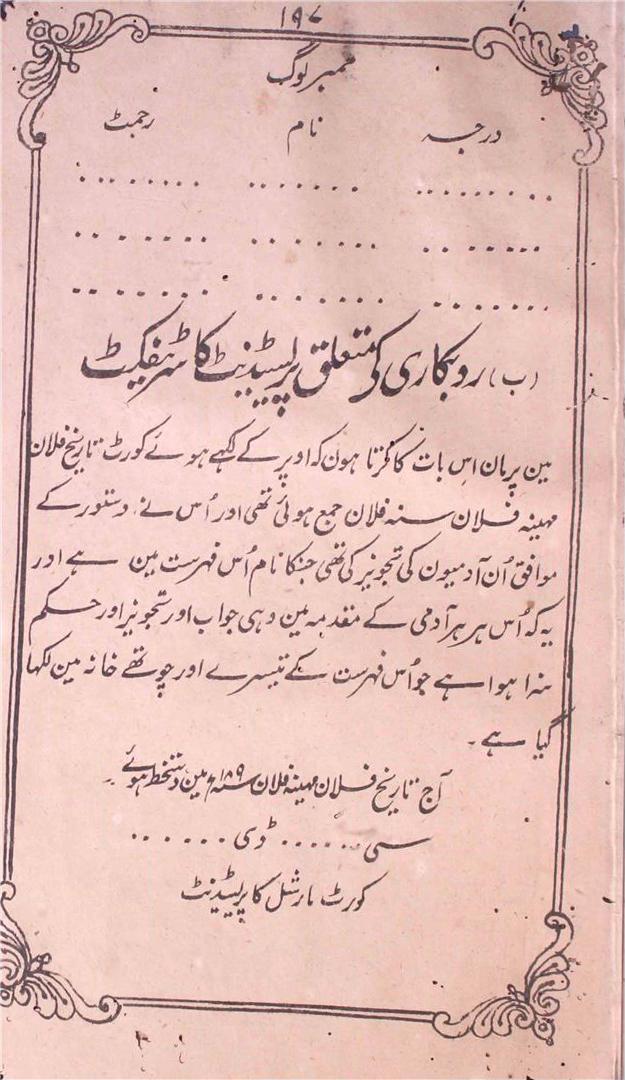 ۱۹۷
ممبر لوگ
درجہ نام رجمٹ
. . . . . . . . . . . . . . . . . . . . . . . .
. . . . . . . . . . . . . . . . . . . . . . . .
. . . . . . . . . . . . . . . . . . . . . . . .
(ب) روبکاری کی متعلق پریسیڈینٹ کا سرٹیفکیٹ
مین پرمان اس بات کا کرتا ہون کہ اوپر کے لکھے ہوئے کورٹ تاریخ فلان
مہینہ فلان سنہ فلان جمع ہوئی تھی اور اُس نے دستور کے
موافق اُن آدمیون کی تجویز کی تھی جنکا نام اُس فہرست مین ہے اور
یہ کہ اُس ہر ہر آدمی کے مقدمہ مین وہی جواب اور تجویز اور حکم
سزا ہوا ہے جو اُس فہرست کے تیسرے اور چوتھے خانہ مین لکھا
گیا ہے۔
آج تاریخ فلان مہینہ فلان سنہ ۱۸۹ مین دستخط ہوئے۔
سی . . . . . . ڈی . . . . . .
کورٹ مارشل کا پریسیڈینٹ